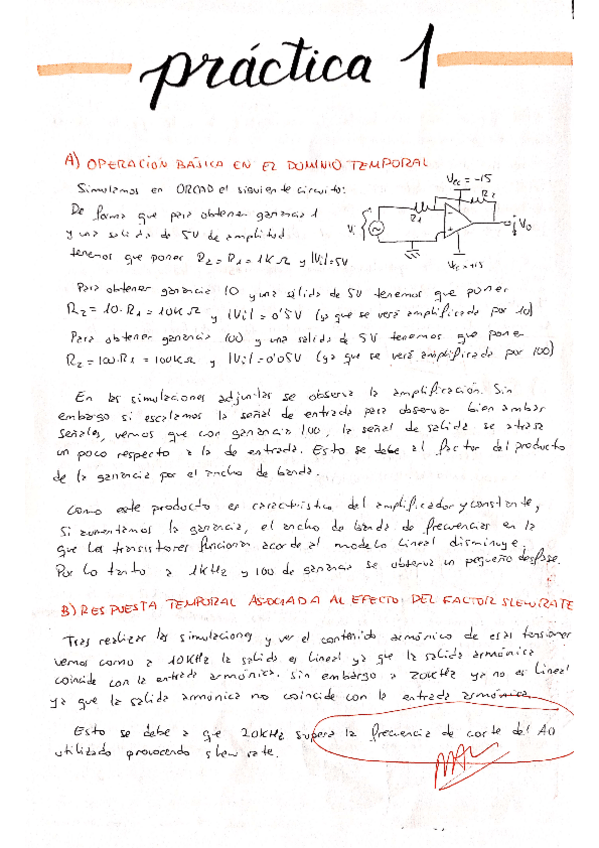 práctica 1
A) OPERACIÓN BÁSICA EN EL DOMINIO TEMPORAL
Simulamos en ORCAD el siguiente circuito:
De forma que para obtener ganancia 1
y una salida de 5V de amplitud
tenemos que poner R2 = R1 = 1KΩ y |Vi|=5V
Vcc = -15
R2
R1
Vi
V0
Vcc = +15
Para obtener ganancia 10 y una salida de 5V tenemos que poner
R2 = 10·R1 = 10KΩ y |Vi| = 0'5V (ya que se verá amplificada por 10)
Para obtener ganancia 100 y una salida de 5V tenemos que poner
R2 = 100·R1 = 100KΩ y |Vi| = 0'05V (ya que se verá amplificada por 100)
En las simulaciones adjuntas se observa la amplificación. Sin
embargo si escalamos la señal de entrada para observar bien ambas
señales, vemos que con ganancia 100, la señal de salida se atrasa
un poco respecto a la de entrada. Esto se debe al factor del producto
de la ganancia por el ancho de banda.
Como este producto es característico del amplificador y constante,
si aumentamos la ganancia, el ancho de banda de frecuencias en la
que los transistores funcionan acorde al modelo lineal disminuye.
Por lo tanto a 1KHz y 100 de ganancia se observa un pequeño desfase.
B) RESPUESTA TEMPORAL ASOCIADA AL EFECTO DEL FACTOR SLEWRATE
Tras realizar las simulaciones y ver el contenido armónico de esas tensiones
vemos como a 10KHz la salida es lineal ya que la salida armónica
coincide con la entrada armónica. Sin embargo a 20KHz ya no es lineal
ya que la salida armónica no coincide con la entrada armónica.
Esto se debe a que 20KHz supera la frecuencia de corte del AO
utilizado provocando slew rate.
MAL